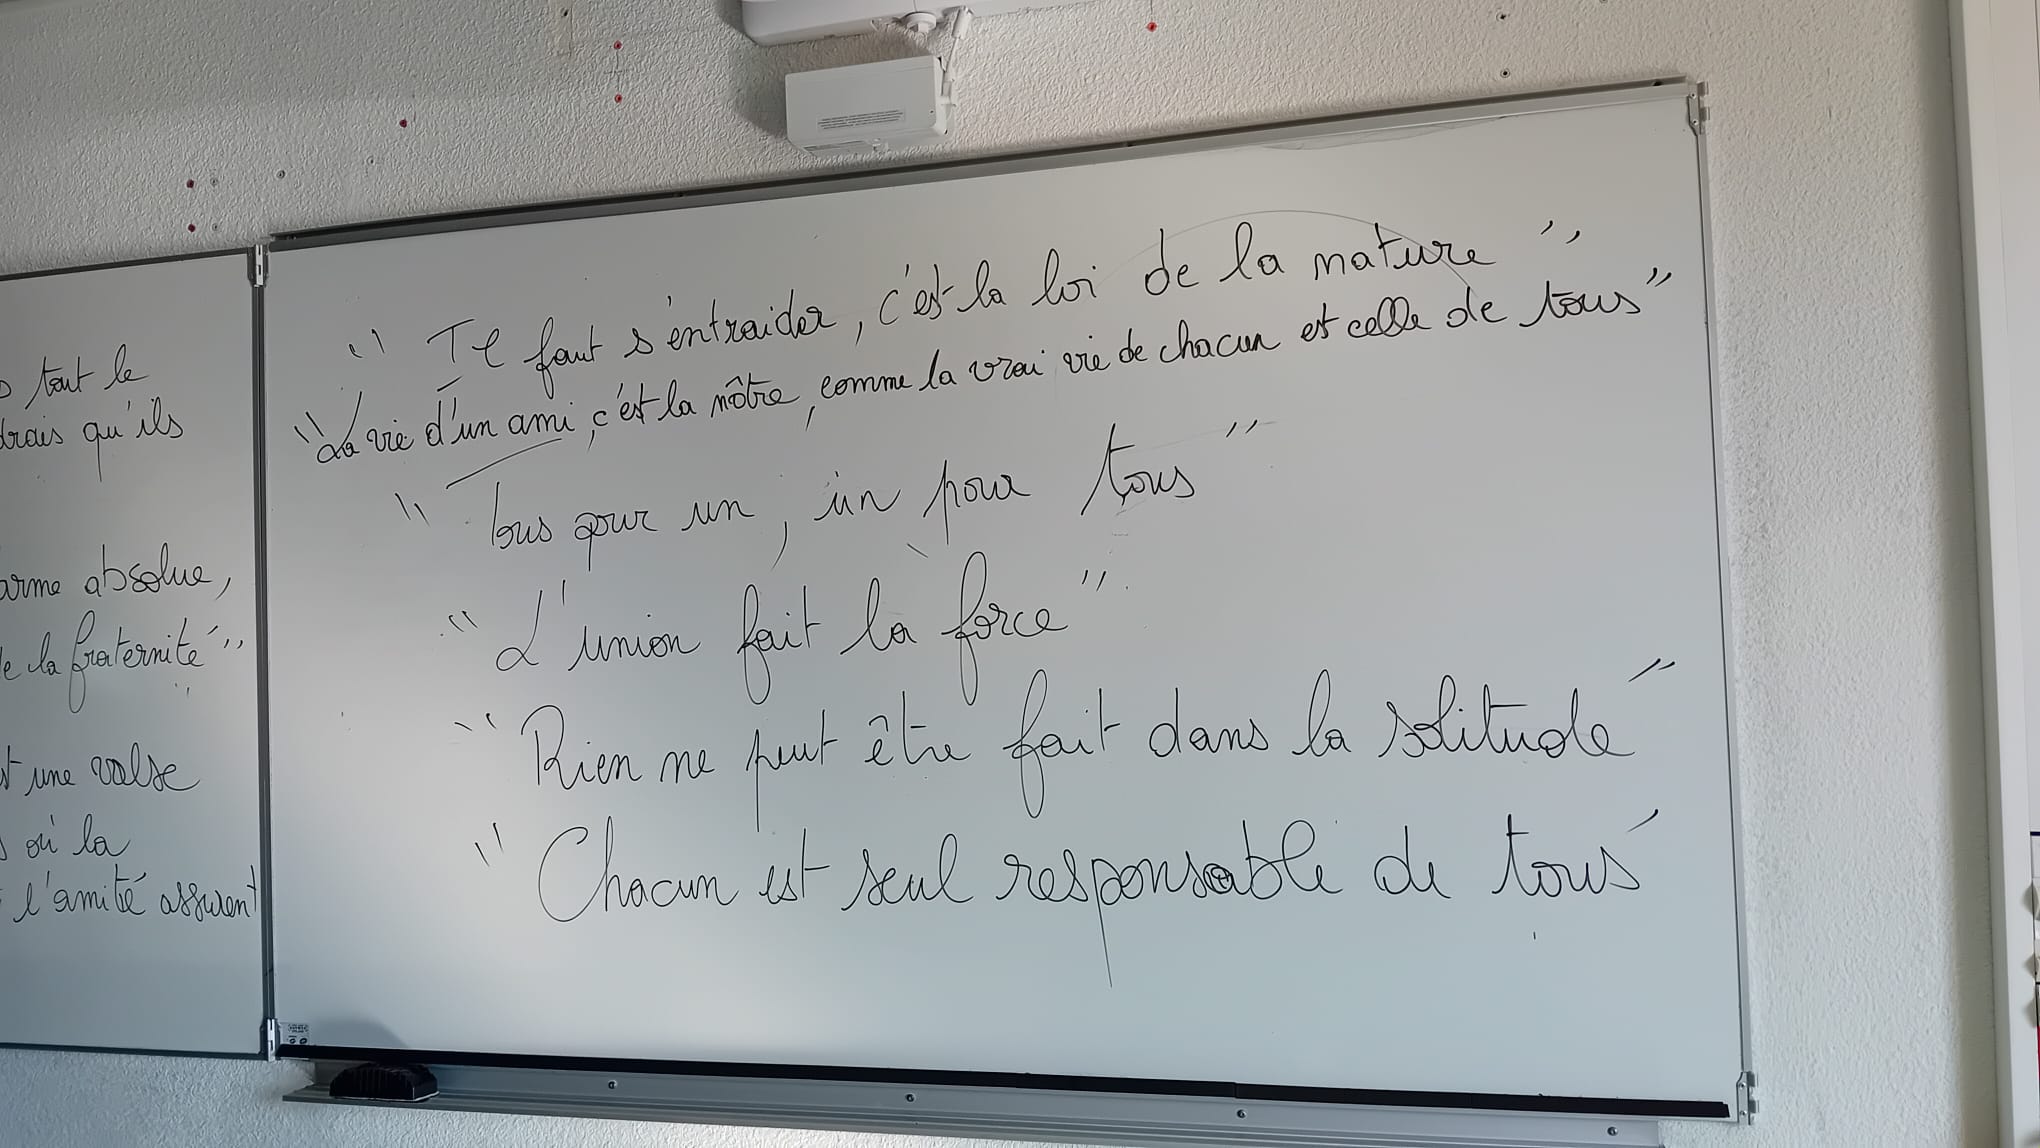 tout le
drais qu'ils
arme absolue,
de la fraternité"
st une valse
où la
l'amitié assurent
" Il faut s'entraider, c'est la loi de la nature "
"La vie d'un ami, c'est la nôtre, comme la vrai vie de chacun est celle de tous"
" Tous pour un, un pour tous "
" L'union fait la force "
" Rien ne peut être fait dans la solitude "
" Chacun est seul responsable de tous